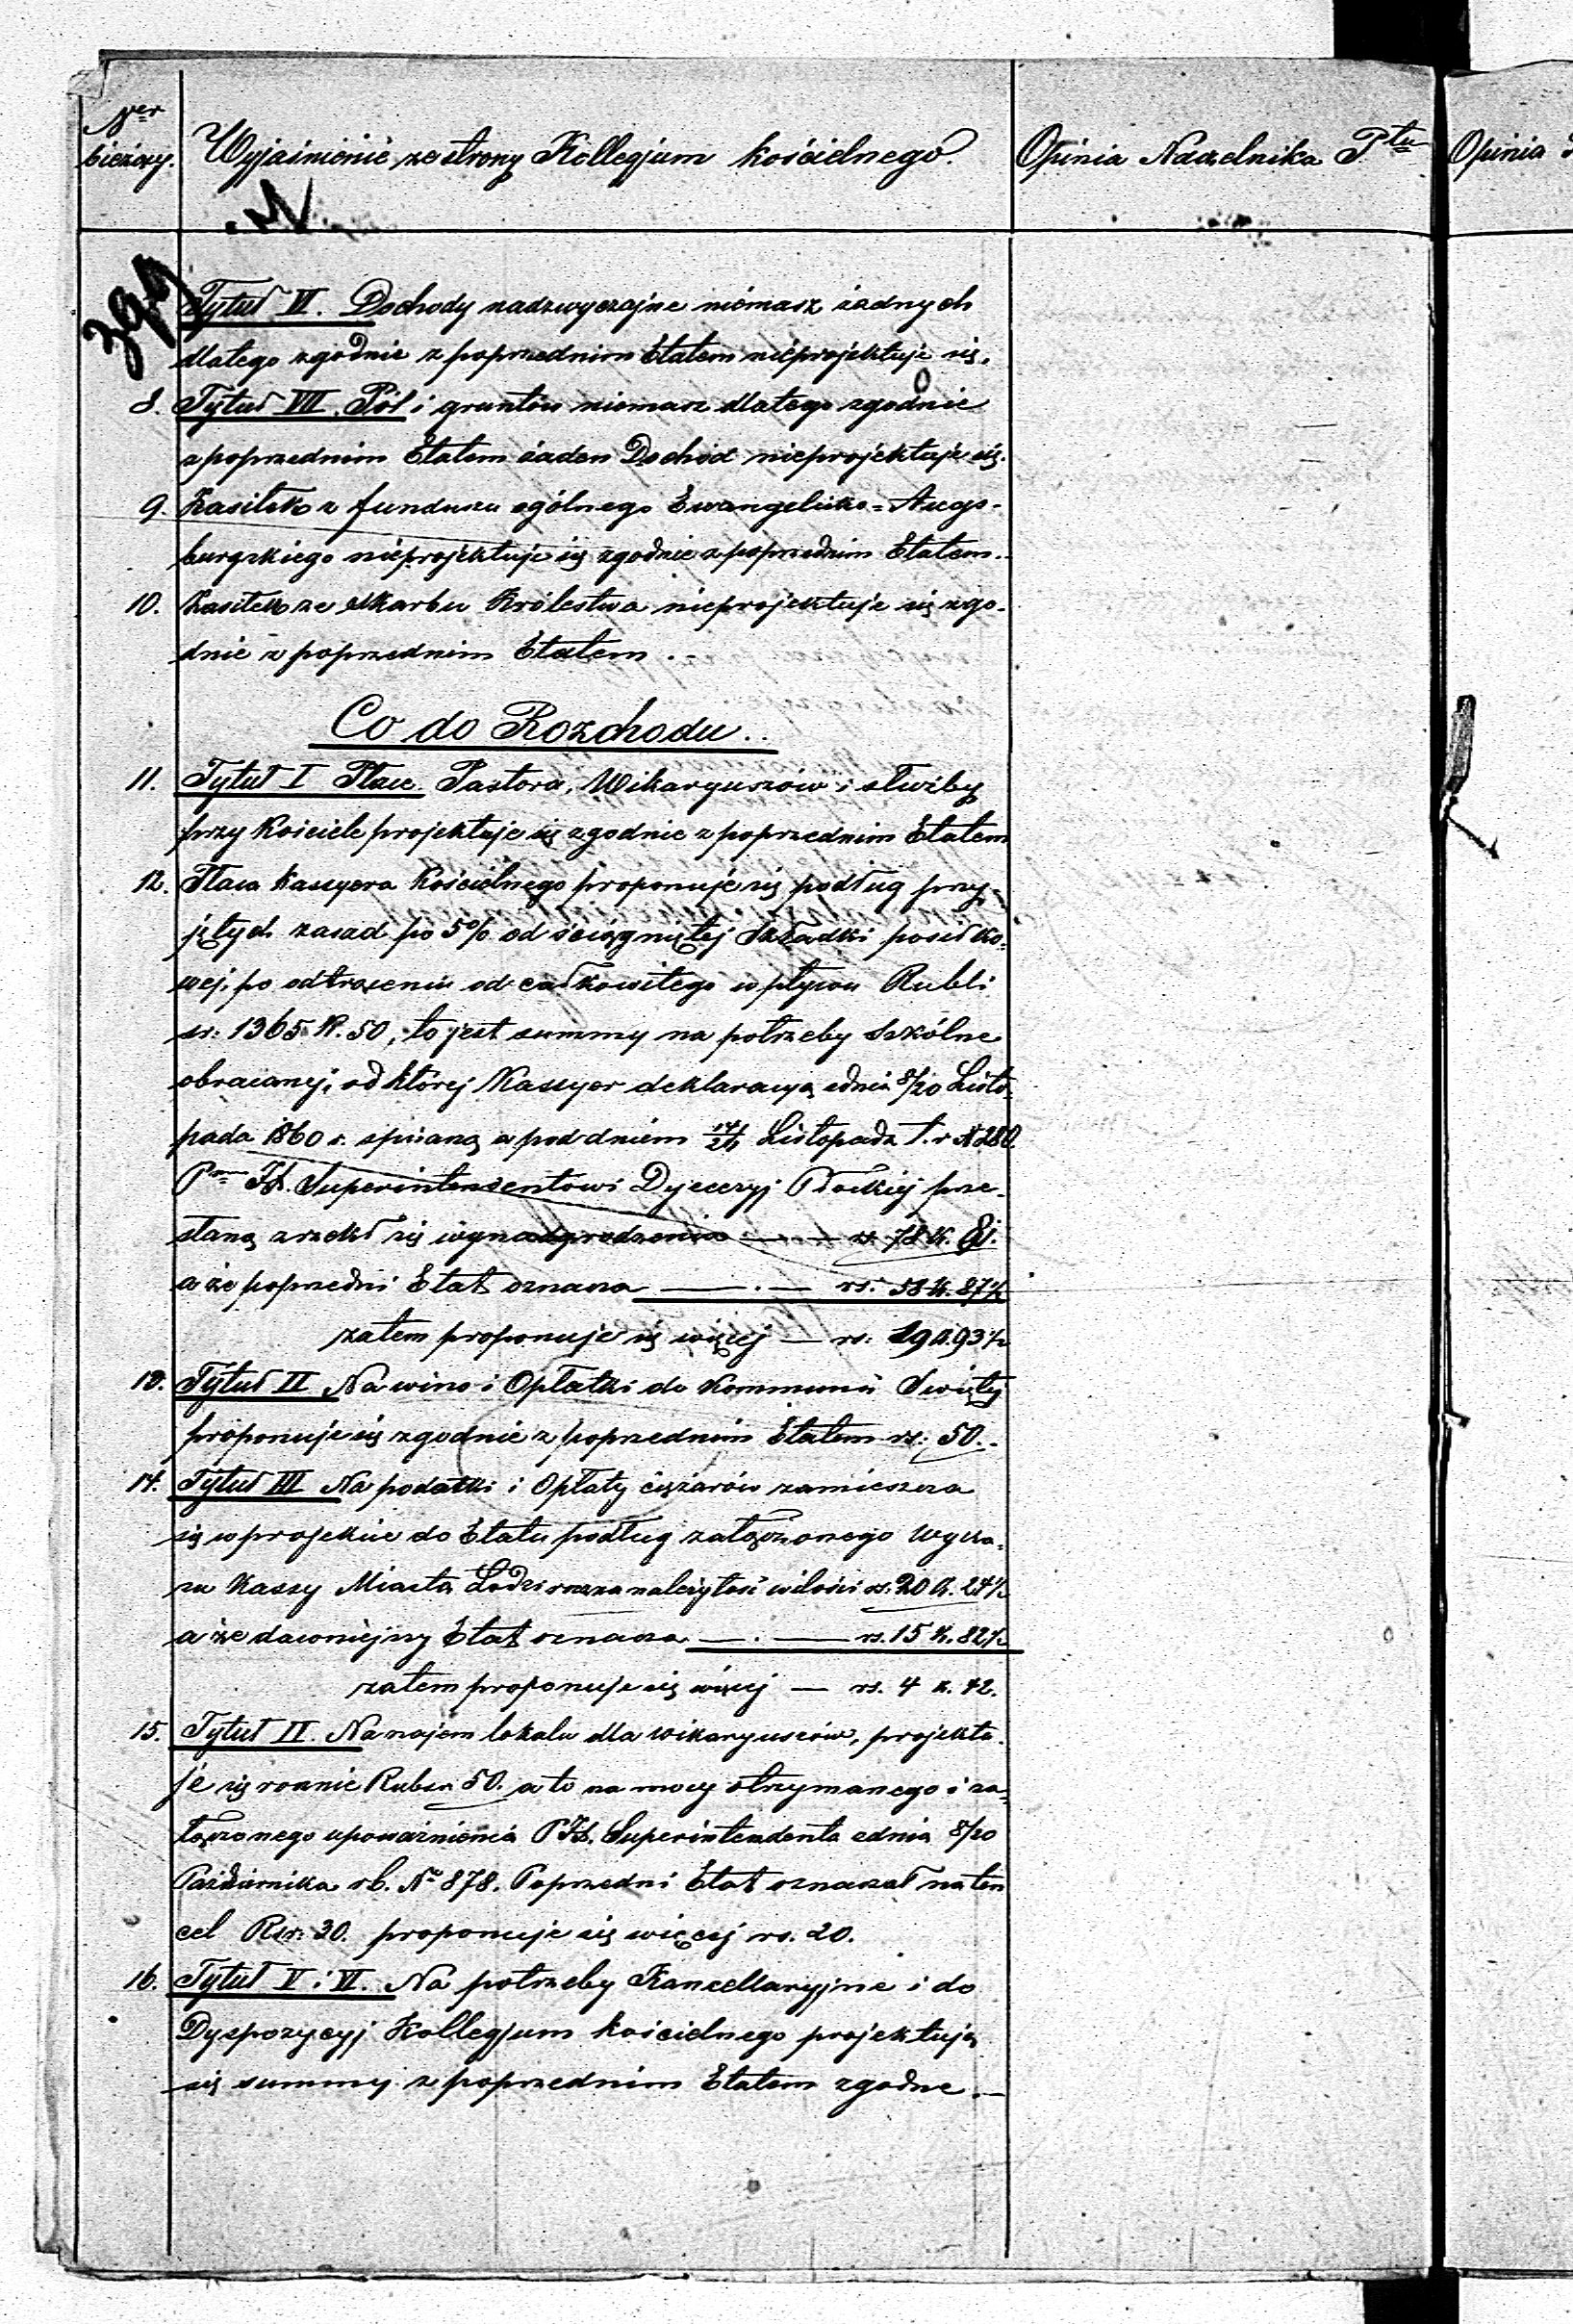 Ner bieżący. Wyjaśnienie ze strony Kollegjum kościelnego. Opinia Naczelnika Ptu Opinia
Tytuł VI. Dochody nadzwyczajne niémasz żadnych
dlatego zgodnie z poprzednim Etatem nieprojektuje się.
8. Tytuł VII. Pól i gruntów niemasz dlatego zgodnie
z poprzednim Etatem żaden Dochód nieprojektuje się.
9. Zasiłek z funduszu ogólnego Ewangelicko=Augs-
burgskiego nieprojektuje się zgodnie z poprzednim Etatem.
10. Zasiłek ze skarbu Królestwa nieprojektuje się zgo-
dnie z poprzednim Etatem.
Co do Rozchodu.
11. Tytuł I Płace. Pastora, Wikaryuszów i służby
przy Kościele projektuje się zgodnie z poprzednim Etatem
12. Płaca Kassyera Kościelnego proponuje się podług przy-
jętych zasad po 5% od ściągniętej Składki posiłko-
wej, po odtrąceniu od całkowitego wpływu Rubli
sr: 1365 K. 50, to jest summy na potrzeby Szkólne
obracanej, od której Kassyer deklaracyą z dnia 8/20 Listo-
pada 1860 r. spisaną a pod dniem Listopada t. r N
Superintendentowi Dyecezyj Płockiej prze-
słaną zrzekł się wynadgrodzenia — rs. 78 K.
a że poprzedni Etat oznacza — . — rs. 58 K. 87½
zatem proponuje się więcej — rs: 19 K. 93½
13. Tytuł II Na wino i Opłatki do Kommunii Swiętej
proponuje się zgodnie z poprzednim Etatem rs: 50.-
14. Tytuł III Na podatki i Opłaty ciężarów zamieszcza
się w projekcie do Etatu podług załączonego wyka-
zu Kassy Miasta Łodzi roczna należytość w ilości rs. 20 K. 24½
a że dawniejszy Etat oznacza — . — rs. 15 K. 82½
zatem proponuje się więcej — rs. 4 K. 42.
15. Tytuł IV. Na najem lokalu dla wikaryuszów, projektu-
je się rocznie Rubsr 50. a to na mocy otrzymanego i za-
łączonego upoważnienia Superintendenta z dnia 8/20
Października r b. No 878. Poprzedni Etat oznaczał na ten
cel Rsr: 30. proponuje się więcej rs. 20.
16. Tytuł V i VI. Na potrzeby Kancellaryjne i do
Dyspozycyj Kollegjum kościelnego projektują
się summy z poprzednim Etatem zgodne.—